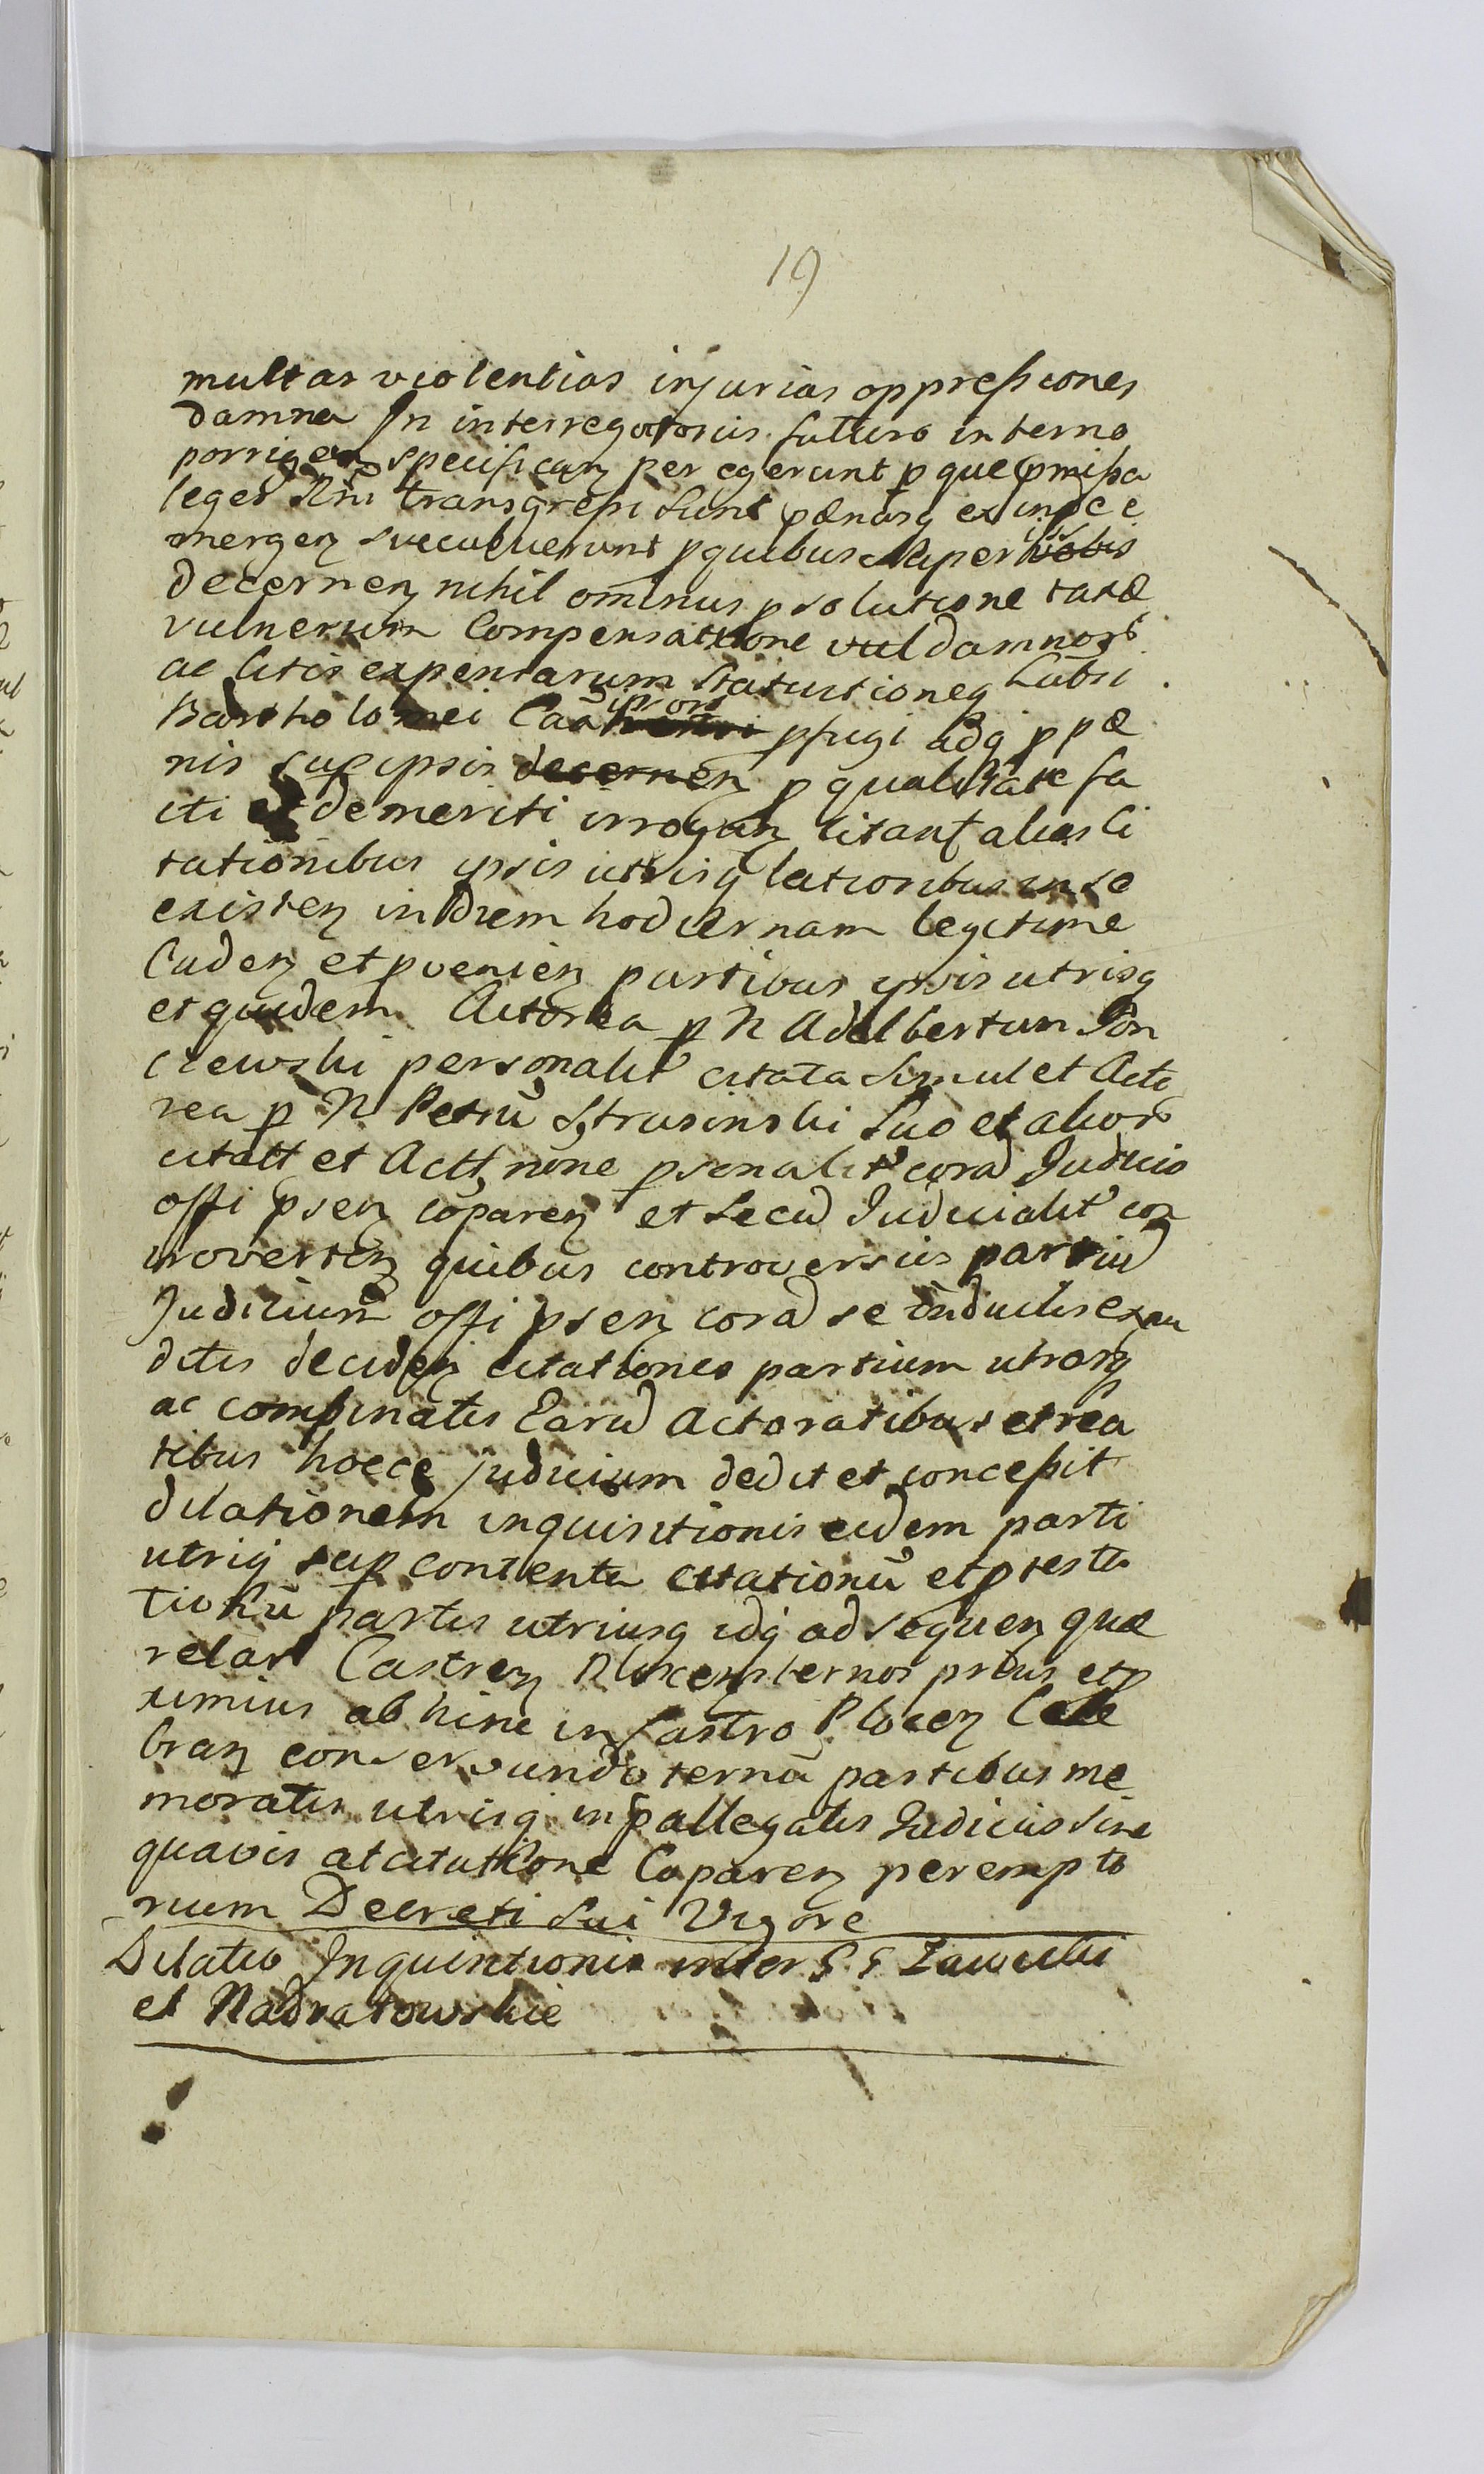 19
multas violentias injurias oppressiones
damna In interrogatoriis futuro in termo
porrigen specifican per egerunt p que pmissa
leges Rni transgressi sunt pænasq exinde e
mergen succubuerunt p quibus super
decernen nihil ominus psolutione taxæ
vulnerum Compensatione vul damnorũ
ac litis expensarum Statuitioneq Labri
Bartholomei pfugi adq p pæ
nis sup ipsis decernen p qualitate fa
cti et demeriti irrogan citant alias ci
tationibus ipsis utrisq lationibus in se
existen in Diem hodiernam legitime
Caden et pvenien partibus ipsis utrisq
et quidem Actorea p N Adalbertum Pon
ciewski personalit citata simul et Acto
rea p N Petrũ Strusinski Suo et alior
citatt et Actt none psonalit corã Judicio
offi psen cõparen et secũ Judicialit con
troverten quibus controversiis partiũ
Judicium offi psen corã se inductis exau
ditis deciden citationes partium utrorq
ac combinatis Earũ Actoratibus et rea
tibus hocce judicium dedit et concessit
dilationem inquisitionis eidem parti
utriq sup contenta citationũ et ptesta
tionũ partis utriusq idq ad sequen quæ
relar Castren Plocen ternos prius et p
ximius ab hinc in Castro Plocen Cele
bran conservando ternũ partibus me
moratis utrisq in pallegatis Judiciis sine
quavis atcitatione Coparen perempto
rium Decreti sui Vigore
Dilatio Inquisitionis inter GG Zawichi
et Nadratowskie